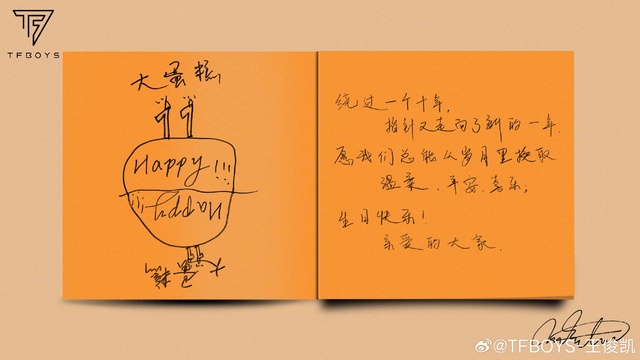 TFBOYS
大蛋糕
Happy!!!
Happy!!!
大蛋糕
绕过一个十年,
指针又走向了新的一年.
愿我们总能从岁月里换取
温柔、平安、喜乐;
生日快乐!
亲爱的大家.
@TFBOYS-王俊凯